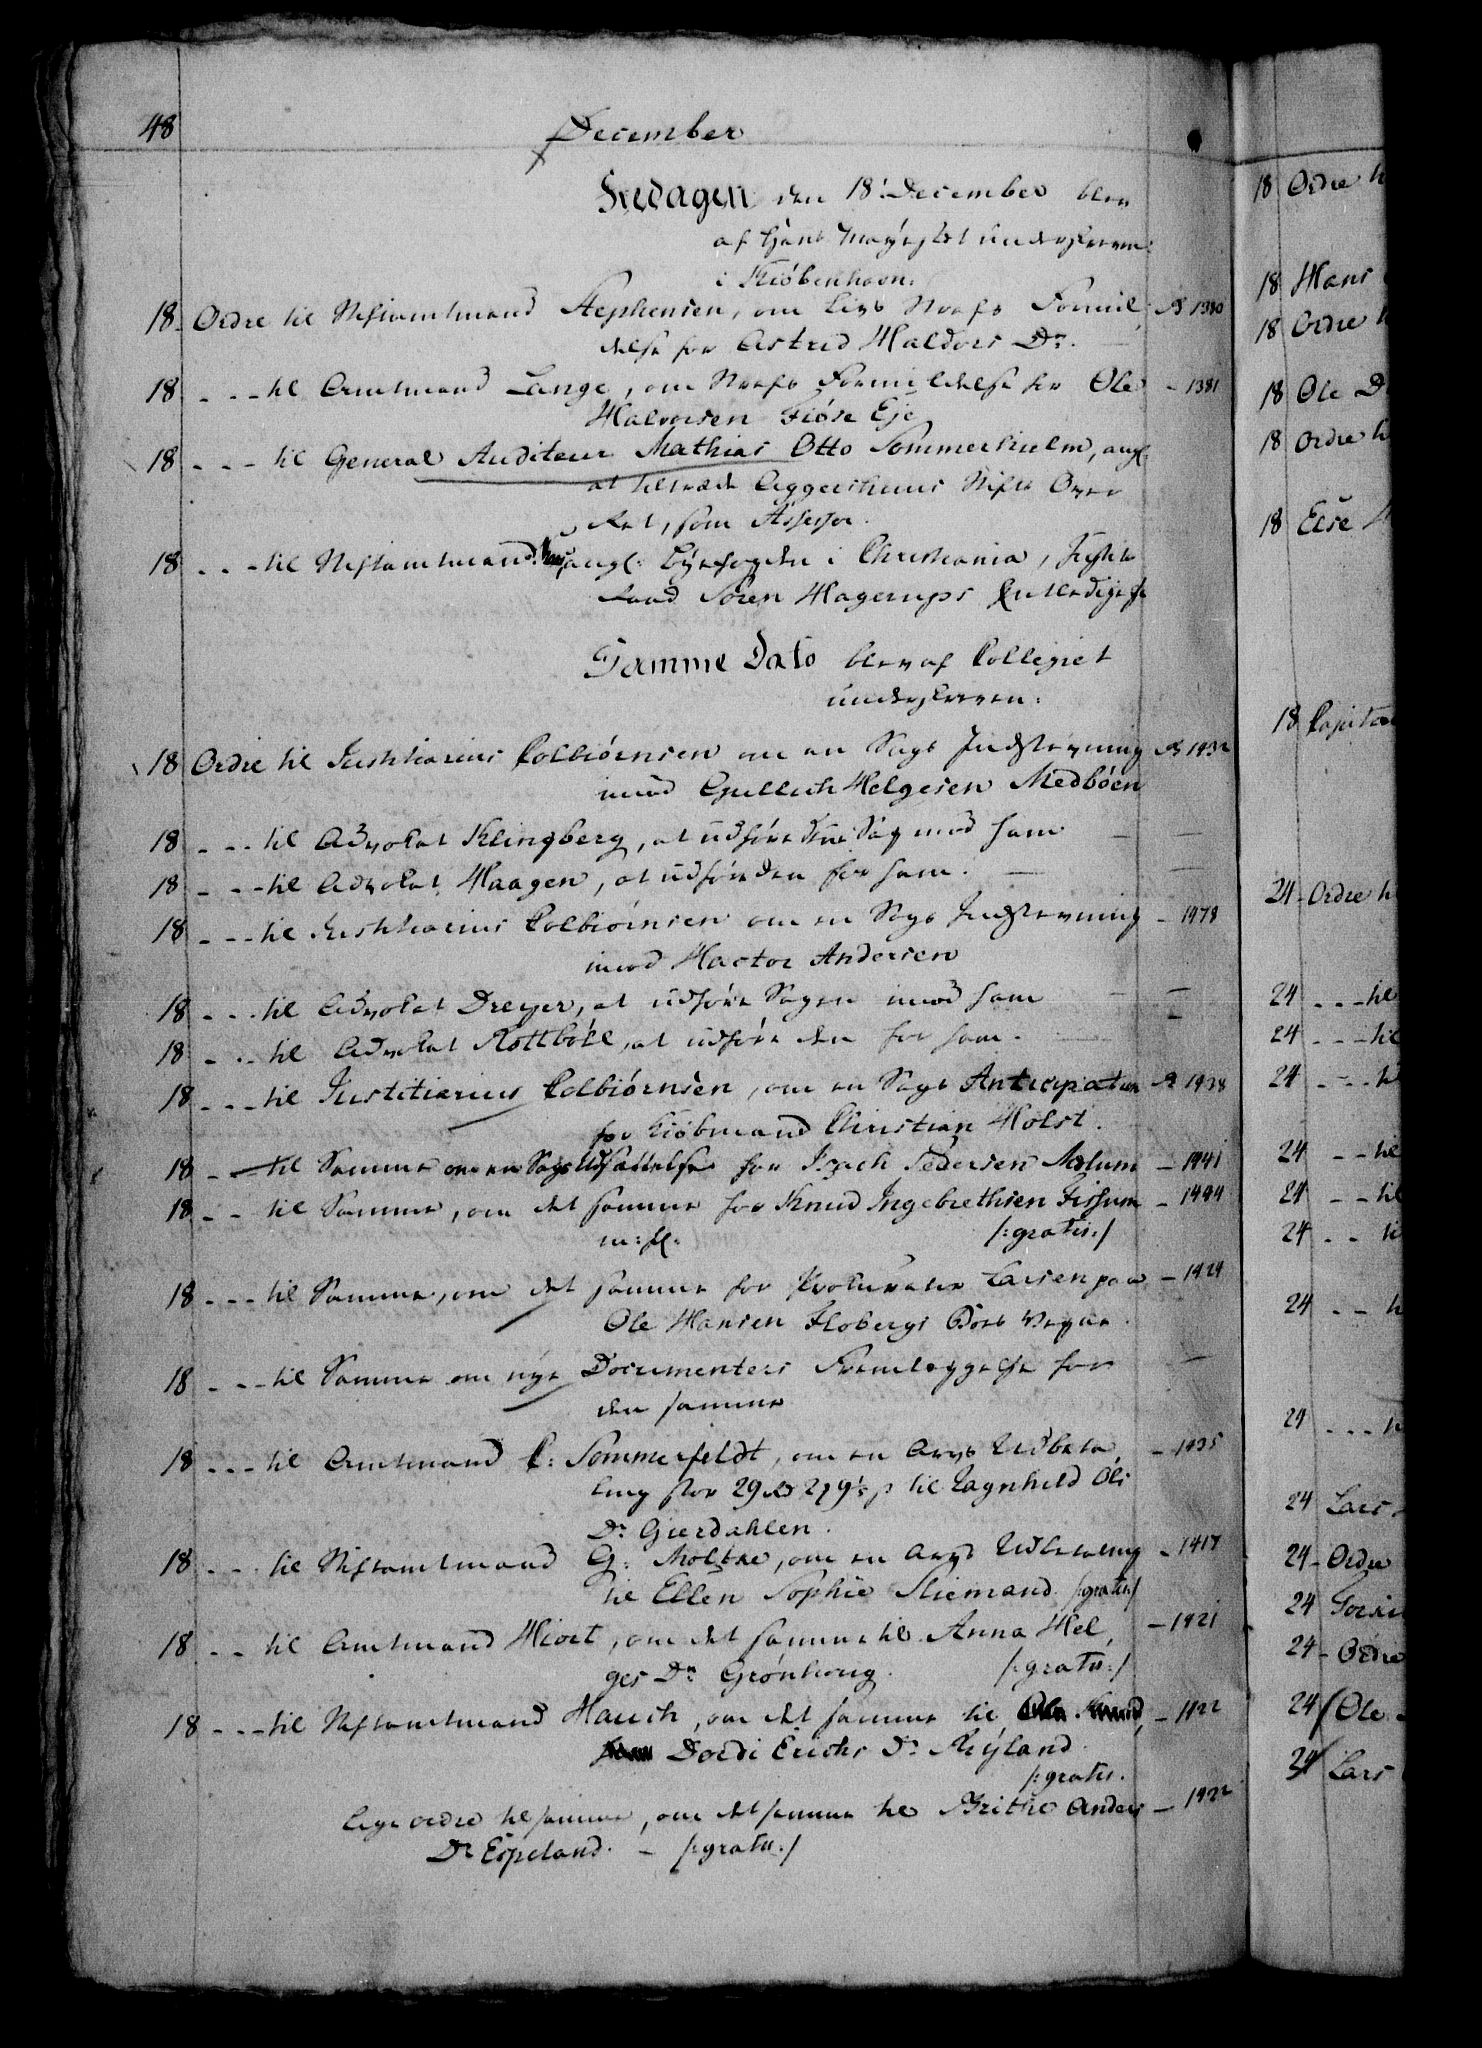 48
December
Fredagen den 18 December blev
af Hans Mayestet underskreven
i Kiöbenhavn.
18 Ordre til Stiftamtmand Stephensen, om Livs Strafs Formil
delse for Astrid Haldors Dr. № 1380
18 - - - til Amtmand Lange, om Strafs Formildelse for Ole - 1381
Halvorsen Fiöse Eje
18 - - - til General Auditeur Mathias Otto Sommerhielm, angl:
at tiltræde Aggershuus Stifts Over
Ret, som Assessor.
18 - - - til Stiftamtmand angl: Byefogden i Christiania, Justits
Raad Sören Hagerups Entledigelse
Samme Dato blev af Collegiet
underskreven.
18 Ordre til Justitiarius Colbiörnsen om en Sags Indstevning № 1432
imod Gullich Helgesen Medböen
18 - - - til Advokat Klingberg, at udföre Sag mod ham — —
18 - - - til Advokat Haagen, at udföre den for ham. — —
18 - - - til Justitiarius Colbiörnsen om en Sags Indstevning - 1478
imod Hactor Andersen
18 - - - til Advokat Dreyer, at udföre Sagen imod ham — —
18 - - - til Advokat Rottböll, at udföre den for ham. — —
18 - - - til Justitiarius Colbiörnsen, om en Sags Anticipation № 1438
for Kiöbmand Christian Holst.
18 - til Samme om en Sags Udsættelse for Isach Pedersen Mælum - 1441
18 - - til Samme, om det samme for Knud Ingebrethsen Fossum - 1444
m: fl: /:gratis:/
18 - - - til Samme, om det samme for Prokurator Larsen paa - 1424
Ole Hansen Flobergs Boes Vegne.
18 - - - til Samme om nye Documenters Fremlæggelse for —
den samme
18 - - - til Amtmand C: Sommerfeldt, om en Arvs Udbeta - 1435
ling stor 29 rd til Ragnhild Ols
Dr Gierdahlen.
18 - - - til Stiftamtmand G: Moltke, om en Arvs Udbetaling - 1417
til Ellen Sophie Stiemand /:gratis:/
18 - - til Amtmand Hiort, om det samme til Anna Hel - 1421
ges Dr Grönhoug. /:gratis:/
18 - - - til Stiftamtmand Hauch, om det samme til - 1422
Dordi Erichs Dr Ryland
/:gratis.
Lige ordre til samme, om det samme til Brithe Anders - 1422
Dr Espeland. - /:gratis:/
18 Ordre
18 Hans
18 Ordre
18 Ole
18 Ordre
18 Else
18
24 - Ordre
24 - - - til
24 - - - til
24 - - -
24 - - til
24 - - til
24 - -
24 - -
24 - - -
24 Lars
24 - Ordre
24
24 - Ordre
24 Ole
24 Lars